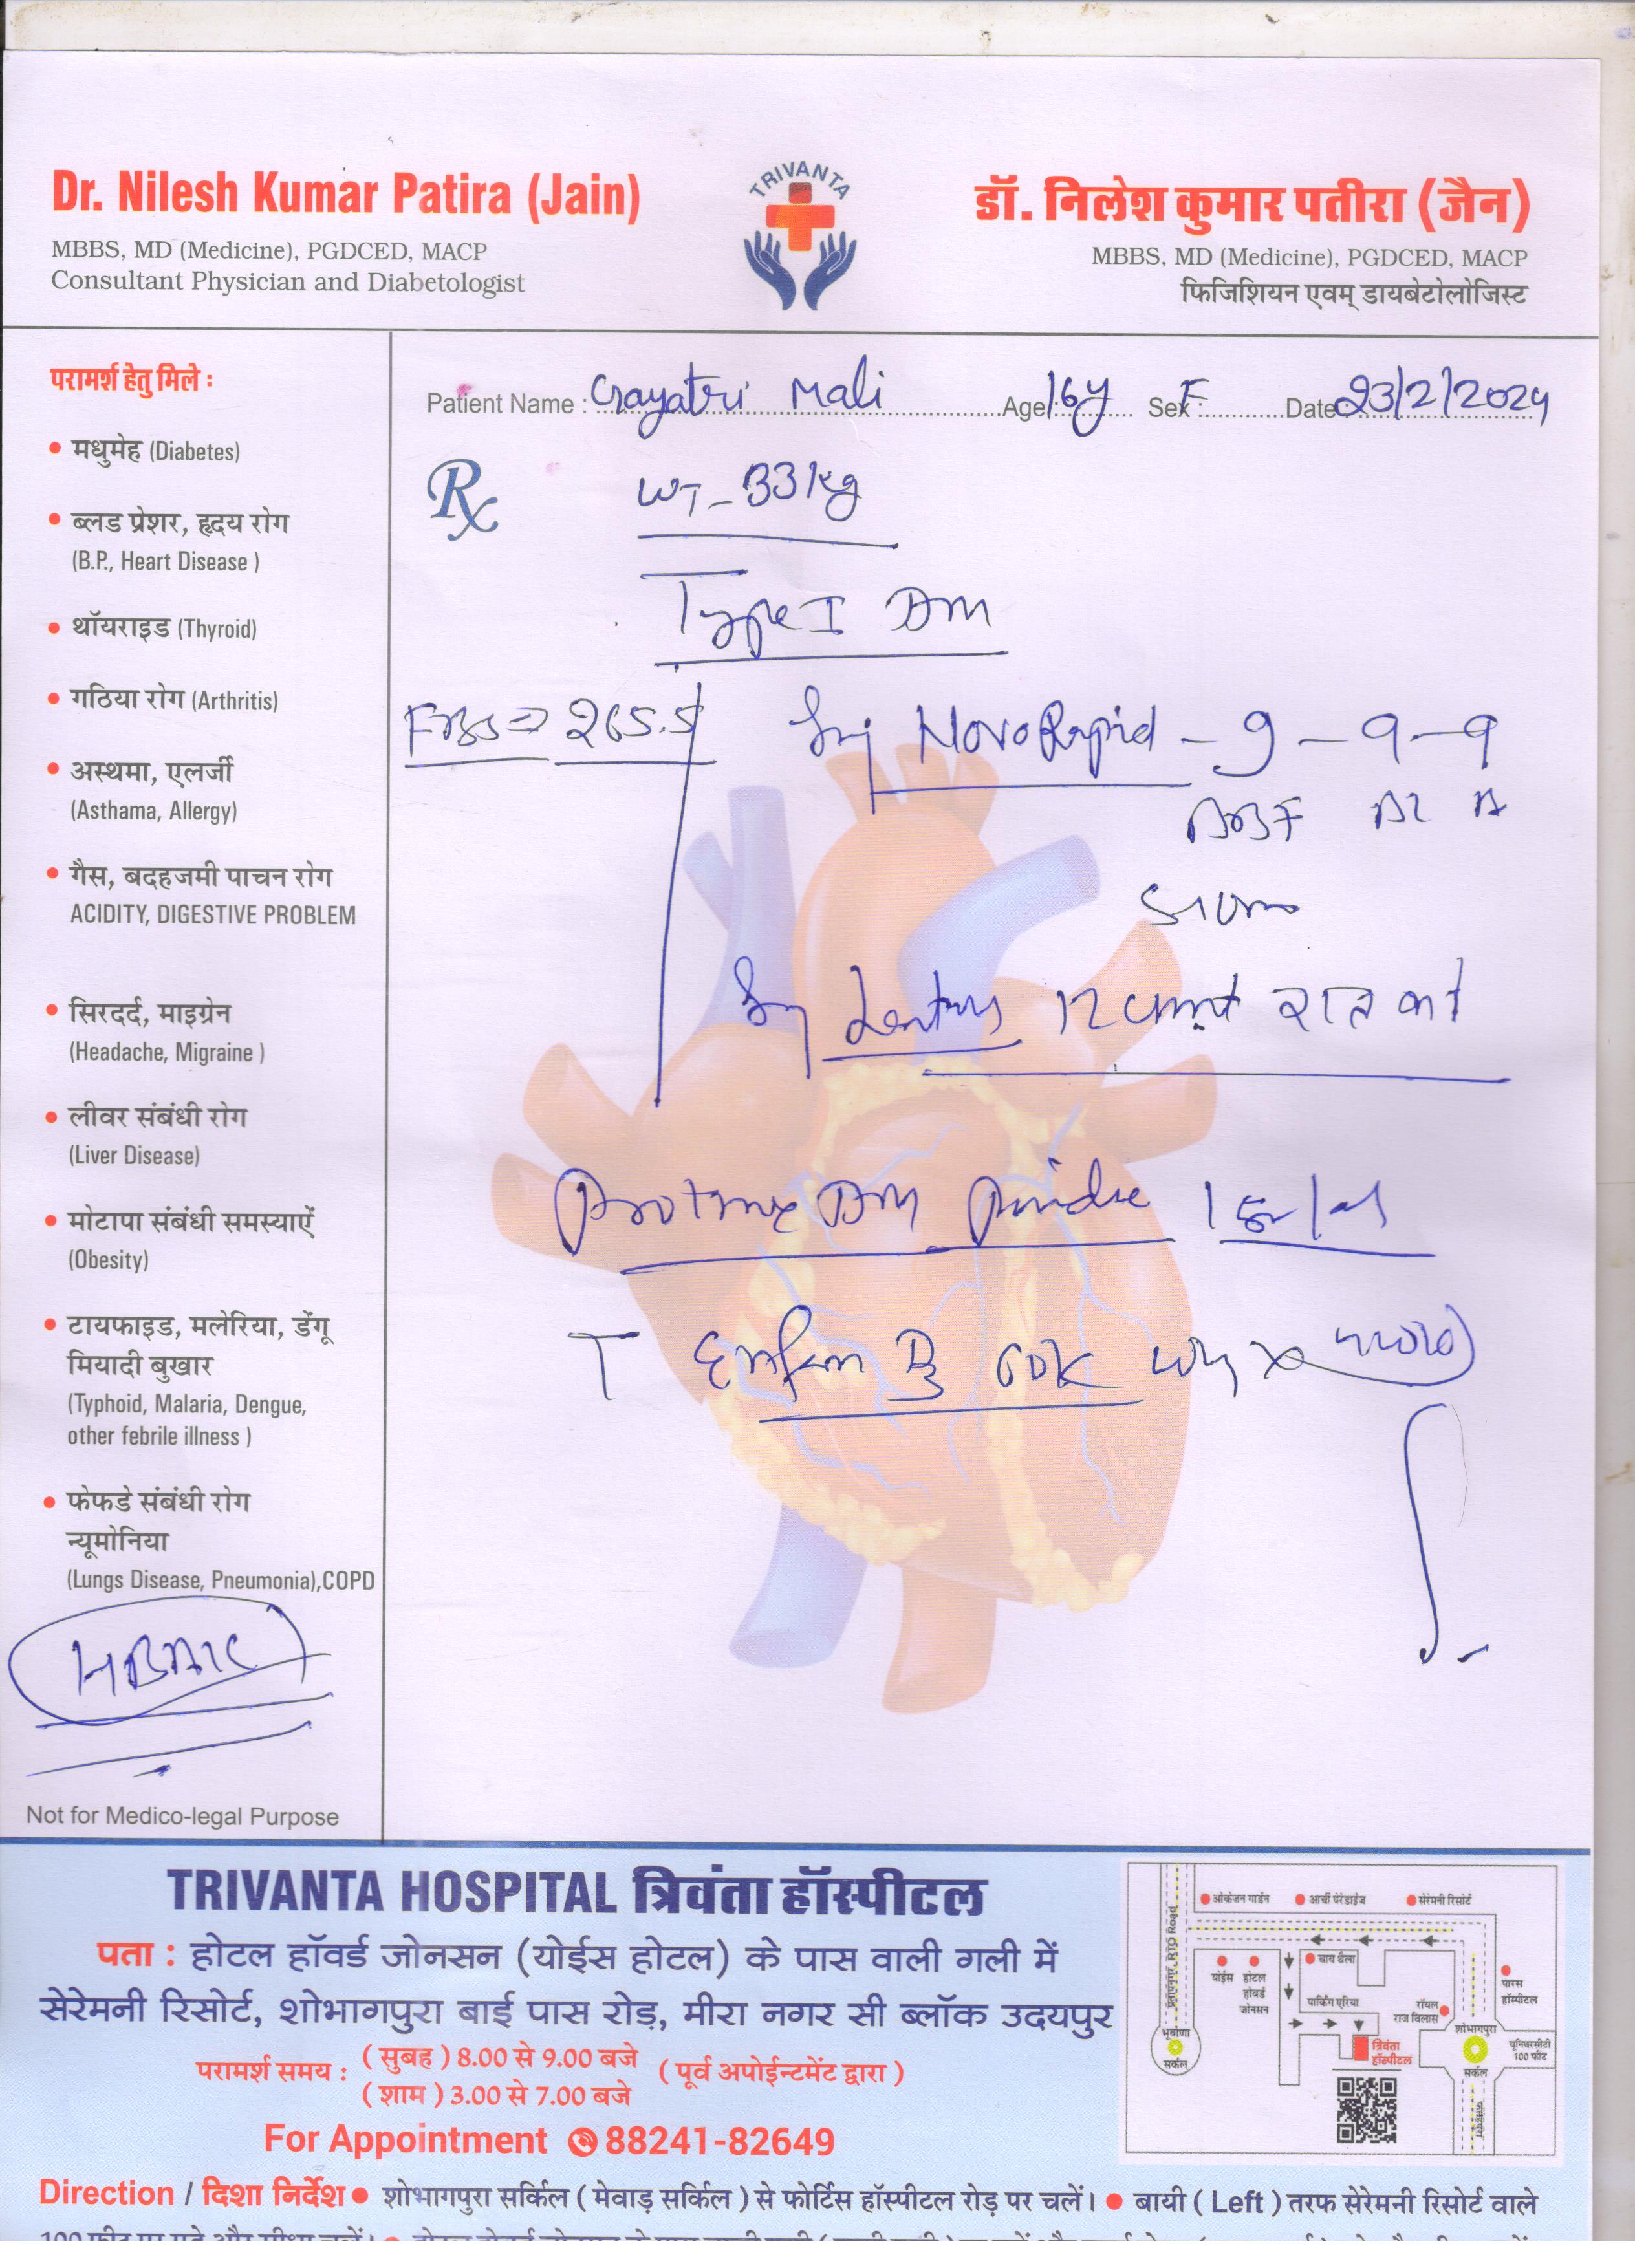 TRIVANTA
Dr. Nilesh Kumar Patira (Jain)
MBBS, MD (Medicine), PGDCED, MACP
Consultant Physician and Diabetologist
डॉ. निलेश कुमार पतीरा (जैन)
MBBS, MD (Medicine), PGDCED, MACP
फिजिशियन एवम् डायबेटोलोजिस्ट
परामर्श हेतु मिले :
• मधुमेह (Diabetes)
• ब्लड प्रेशर, हृदय रोग
(B.P., Heart Disease )
• थॉयराइड (Thyroid)
• गठिया रोग (Arthritis)
• अस्थमा, एलर्जी
(Asthama, Allergy)
• गैस, बदहजमी पाचन रोग
ACIDITY, DIGESTIVE PROBLEM
• सिरदर्द, माइग्रेन
(Headache, Migraine )
• लीवर संबंधी रोग
(Liver Disease)
• मोटापा संबंधी समस्याऐं
(Obesity)
• टायफाइड, मलेरिया, डेंगू
मियादी बुखार
(Typhoid, Malaria, Dengue,
other febrile illness )
• फेफडे संबंधी रोग
न्यूमोनिया
(Lungs Disease, Pneumonia),COPD
HBA1C
Not for Medico-legal Purpose
Patient Name : Gayatri Mali Age 16y Sex F Date 23/2/2024
Rx WT - 33 kg
Type I DM
FBS => 265.5
Inj NovoRapid - 9 - 9 - 9
BBF
Inj Lantus 12 रात को
DM 1
T 60K
TRIVANTA HOSPITAL त्रिवंता हॉस्पीटल
पता : होटल हॉवर्ड जोनसन (योईस होटल) के पास वाली गली में
सेरेमनी रिसोर्ट, शोभागपुरा बाई पास रोड़, मीरा नगर सी ब्लॉक उदयपुर
परामर्श समय : ( सुबह ) 8.00 से 9.00 बजे ( पूर्व अपोईन्टमेंट द्वारा )
( शाम ) 3.00 से 7.00 बजे
For Appointment 88241-82649
ओकेजन गार्डन
आर्ची पेरेडाईज
सेरेमनी रिसोर्ट
चाय थैला
होटल हॉवर्ड जोनसन
पारस हॉस्पीटल
पार्किंग एरिया
रॉयल राज विलास
त्रिवंता हॉस्पीटल
भूवाणा सर्कल
शोभागपुरा सर्कल
यूनिवरसीटी 100 फीट
Direction / दिशा निर्देश • शोभागपुरा सर्किल ( मेवाड़ सर्किल ) से फोर्टिस हॉस्पीटल रोड़ पर चलें। • बायी ( Left ) तरफ सेरेमनी रिसोर्ट वाले